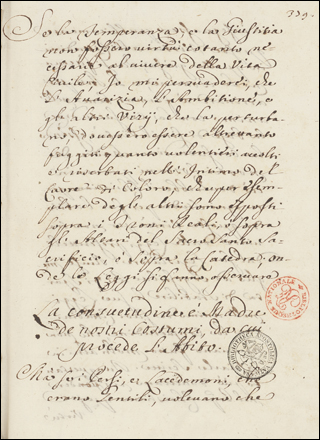 339.
Se la Temperanza, e la Giustitia
non fossero virtù cotanto ne
cessarie al vivere della Vita
Civile, Io mi persuaderei, che
l'Avaritia, l'Ambitione, e
gli altri Vizij, che la perturba
no dovessero essere altretanto
fuggiti, quanto volentieri accolti
e riserbati nell'Intimo del
Cuore di Coloro, che per esem
plare degli altri sono esposti
sopra i Troni Reali, o sopra
gli Altari del Sacrosanto Sa
crificio, o sopra la Catedra, on
de le Leggi si fanno osservare
La consuetudine è Madre
de nostri Costumi, da cui
procede l'Abito.
Ma se i Persi, e i Lacedemoni, che
erano Gentili, volevano che